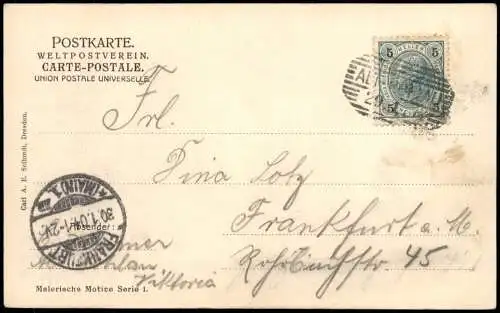 POSTKARTE.
WELTPOSTVEREIN.
CARTE-POSTALE.
UNION POSTALE UNIVERSELLE.
5 5
Frl.
Tina Lotz
Frankfurt a. M.
Rohrbachstr 45
Absender:
Viktoria
FRANKFURT
(MAIN) 1.
30.1.04. 1-2N.
Carl A. E. Schmidt, Dresden.
Malerische Motive Serie 1.